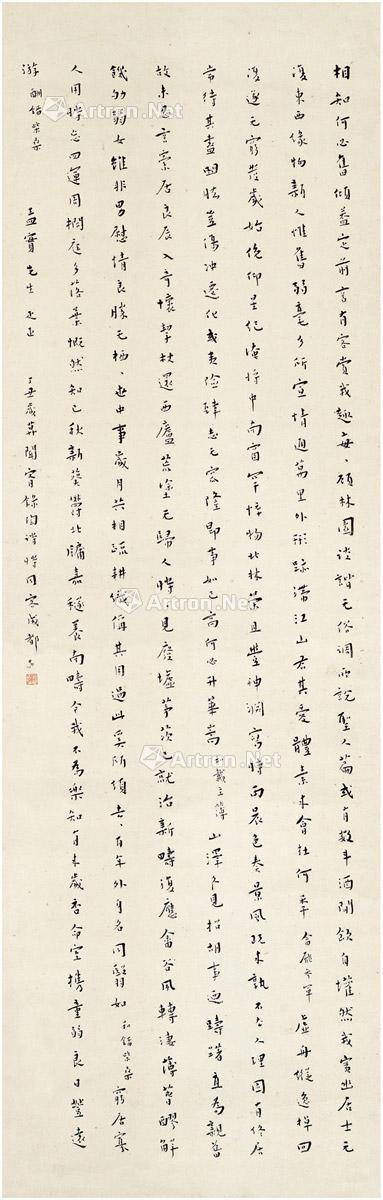 相知何必舊傾蓋定前言有客賞我趣每〻顧林園談諧无俗調所說聖人篇或有數斗酒閒飲自懽然我實幽居士无
復東西緣物新人惟舊弱毫多所宣情通萬里外形跡滯江山君其愛體素來會在何年 答龐參軍 虛舟縱逸棹回
復遂无窮發歲始俛仰星紀奄將中南窗罕悴物北林榮且豐神淵寫時雨晨色奏景風既來孰不去人理固有終居
常待其盡曲肱豈傷沖遷化或夷險肆志无窊隆即事如已高何必升華嵩 和戴主簿 山澤久見招胡事迺躊躇直為親舊
故未忍言索居良辰入奇懷挈杖還西廬荒塗无歸人時〻見廢墟茅茨已就治新疇復應畬谷風轉淒薄春醪解
饑劬弱女雖非男慰情良勝无栖〻世中事歲月共相疏耕織稱其用過此奚所須去〻百年外身名同翳如 和劉柴桑 窮居寡
人用時忘四運周櫚庭多落葉慨然知已秋新葵鬱北牖嘉穟養南疇今我不為樂知有來歲否命室攜童弱良日登遠
游 酬劉柴桑
孟實先生 疋正 丁丑歲莫聞宥錄陶詩時同客成都